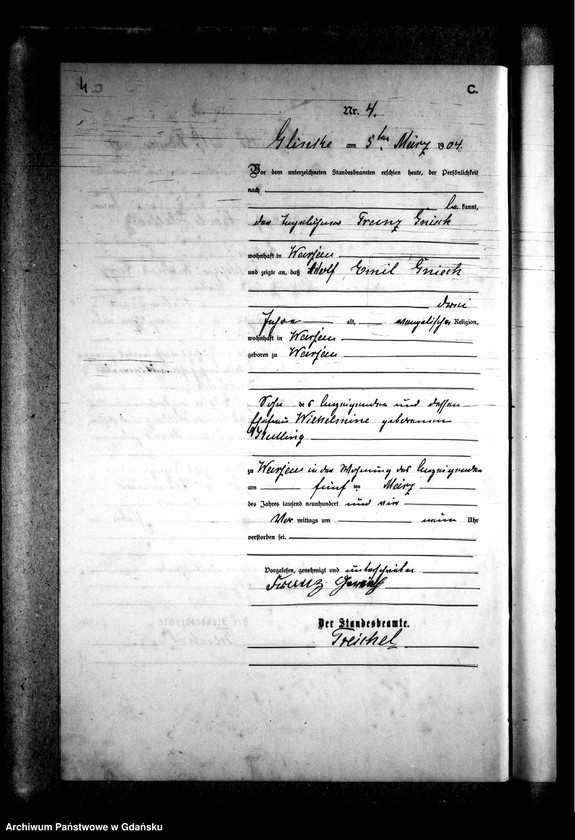 C.
Nr. 4.
am 5ten März 1904.
Vor dem unterzeichneten Standesbeamten erschien heute, der Persönlichkeit
nach
be kannt,
der Franz Gniech
wohnhaft in
und zeigte an, daß Adolf Emil Gniech
drei
Jahre alt, evangelischer Religion,
wohnhaft in
geboren zu
Sohn des Anzeigenden und dessen
Ehefrau Wilhelmine geborenen
zu in der Wohnung des Anzeigenden
am fünf ten März
des Jahres tausend neunhundert und vier
Vor mittags um neun Uhr
verstorben sei.
Vorgelesen, genehmigt und unterschrieben
Franz Gniech
Der Standesbeamte.
Treichel
Archiwum Państwowe w Gdańsku